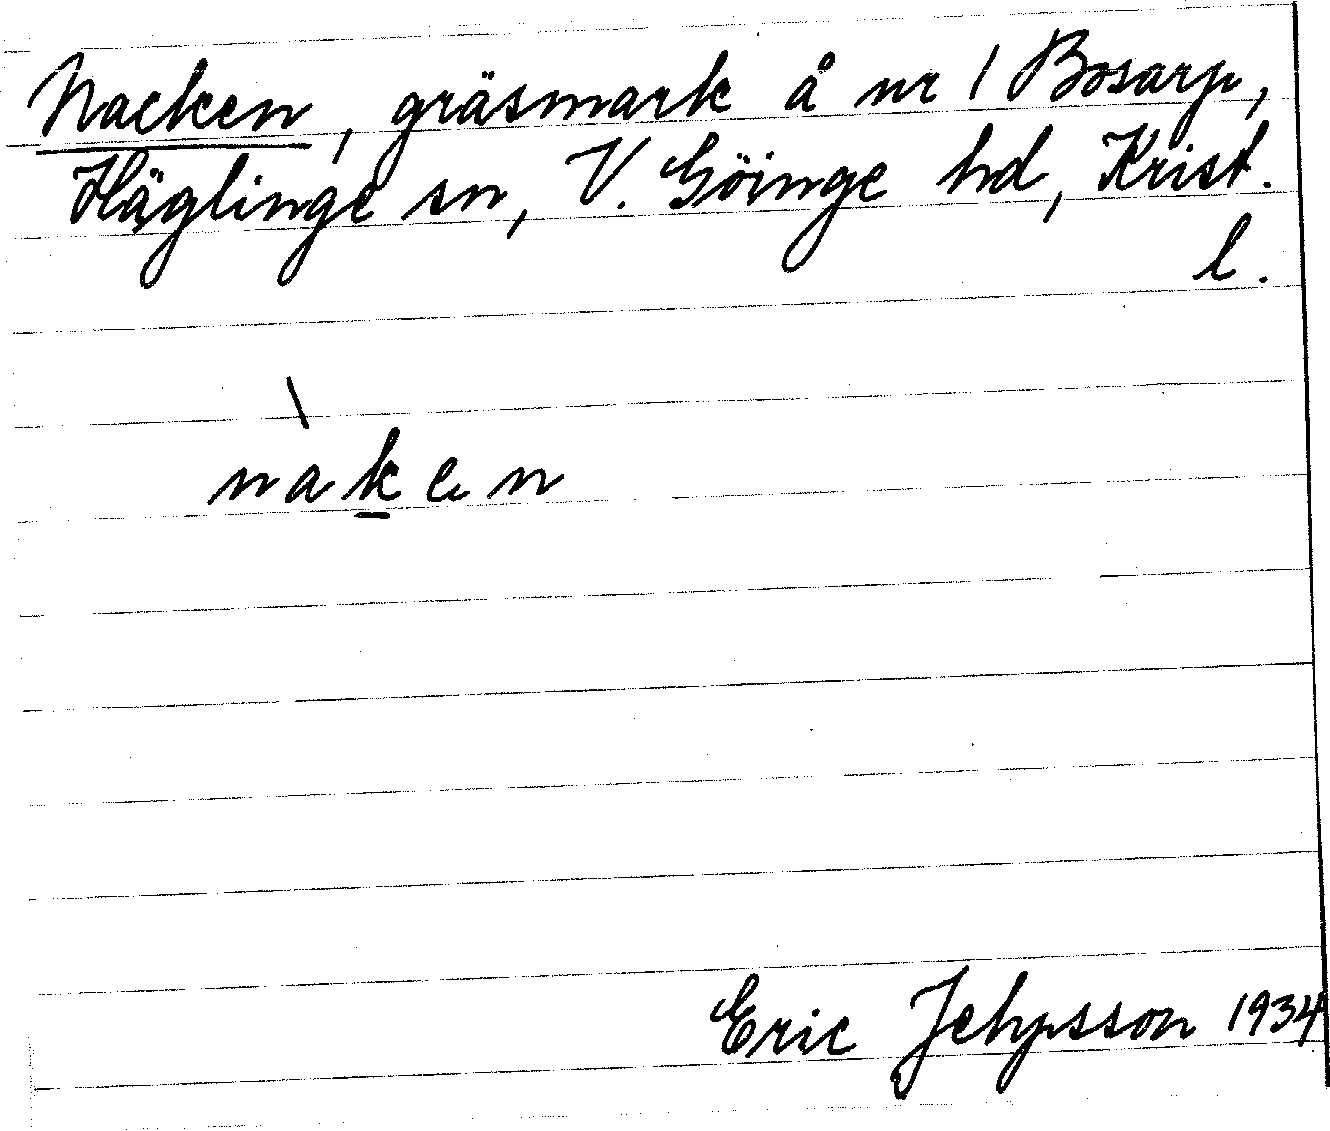 Nacken, gräsmark å nr 1 Bosarp,
Häglinge sn, V. Göinge hd, Krist.
l.
nàken
Eric Jepsson 1934